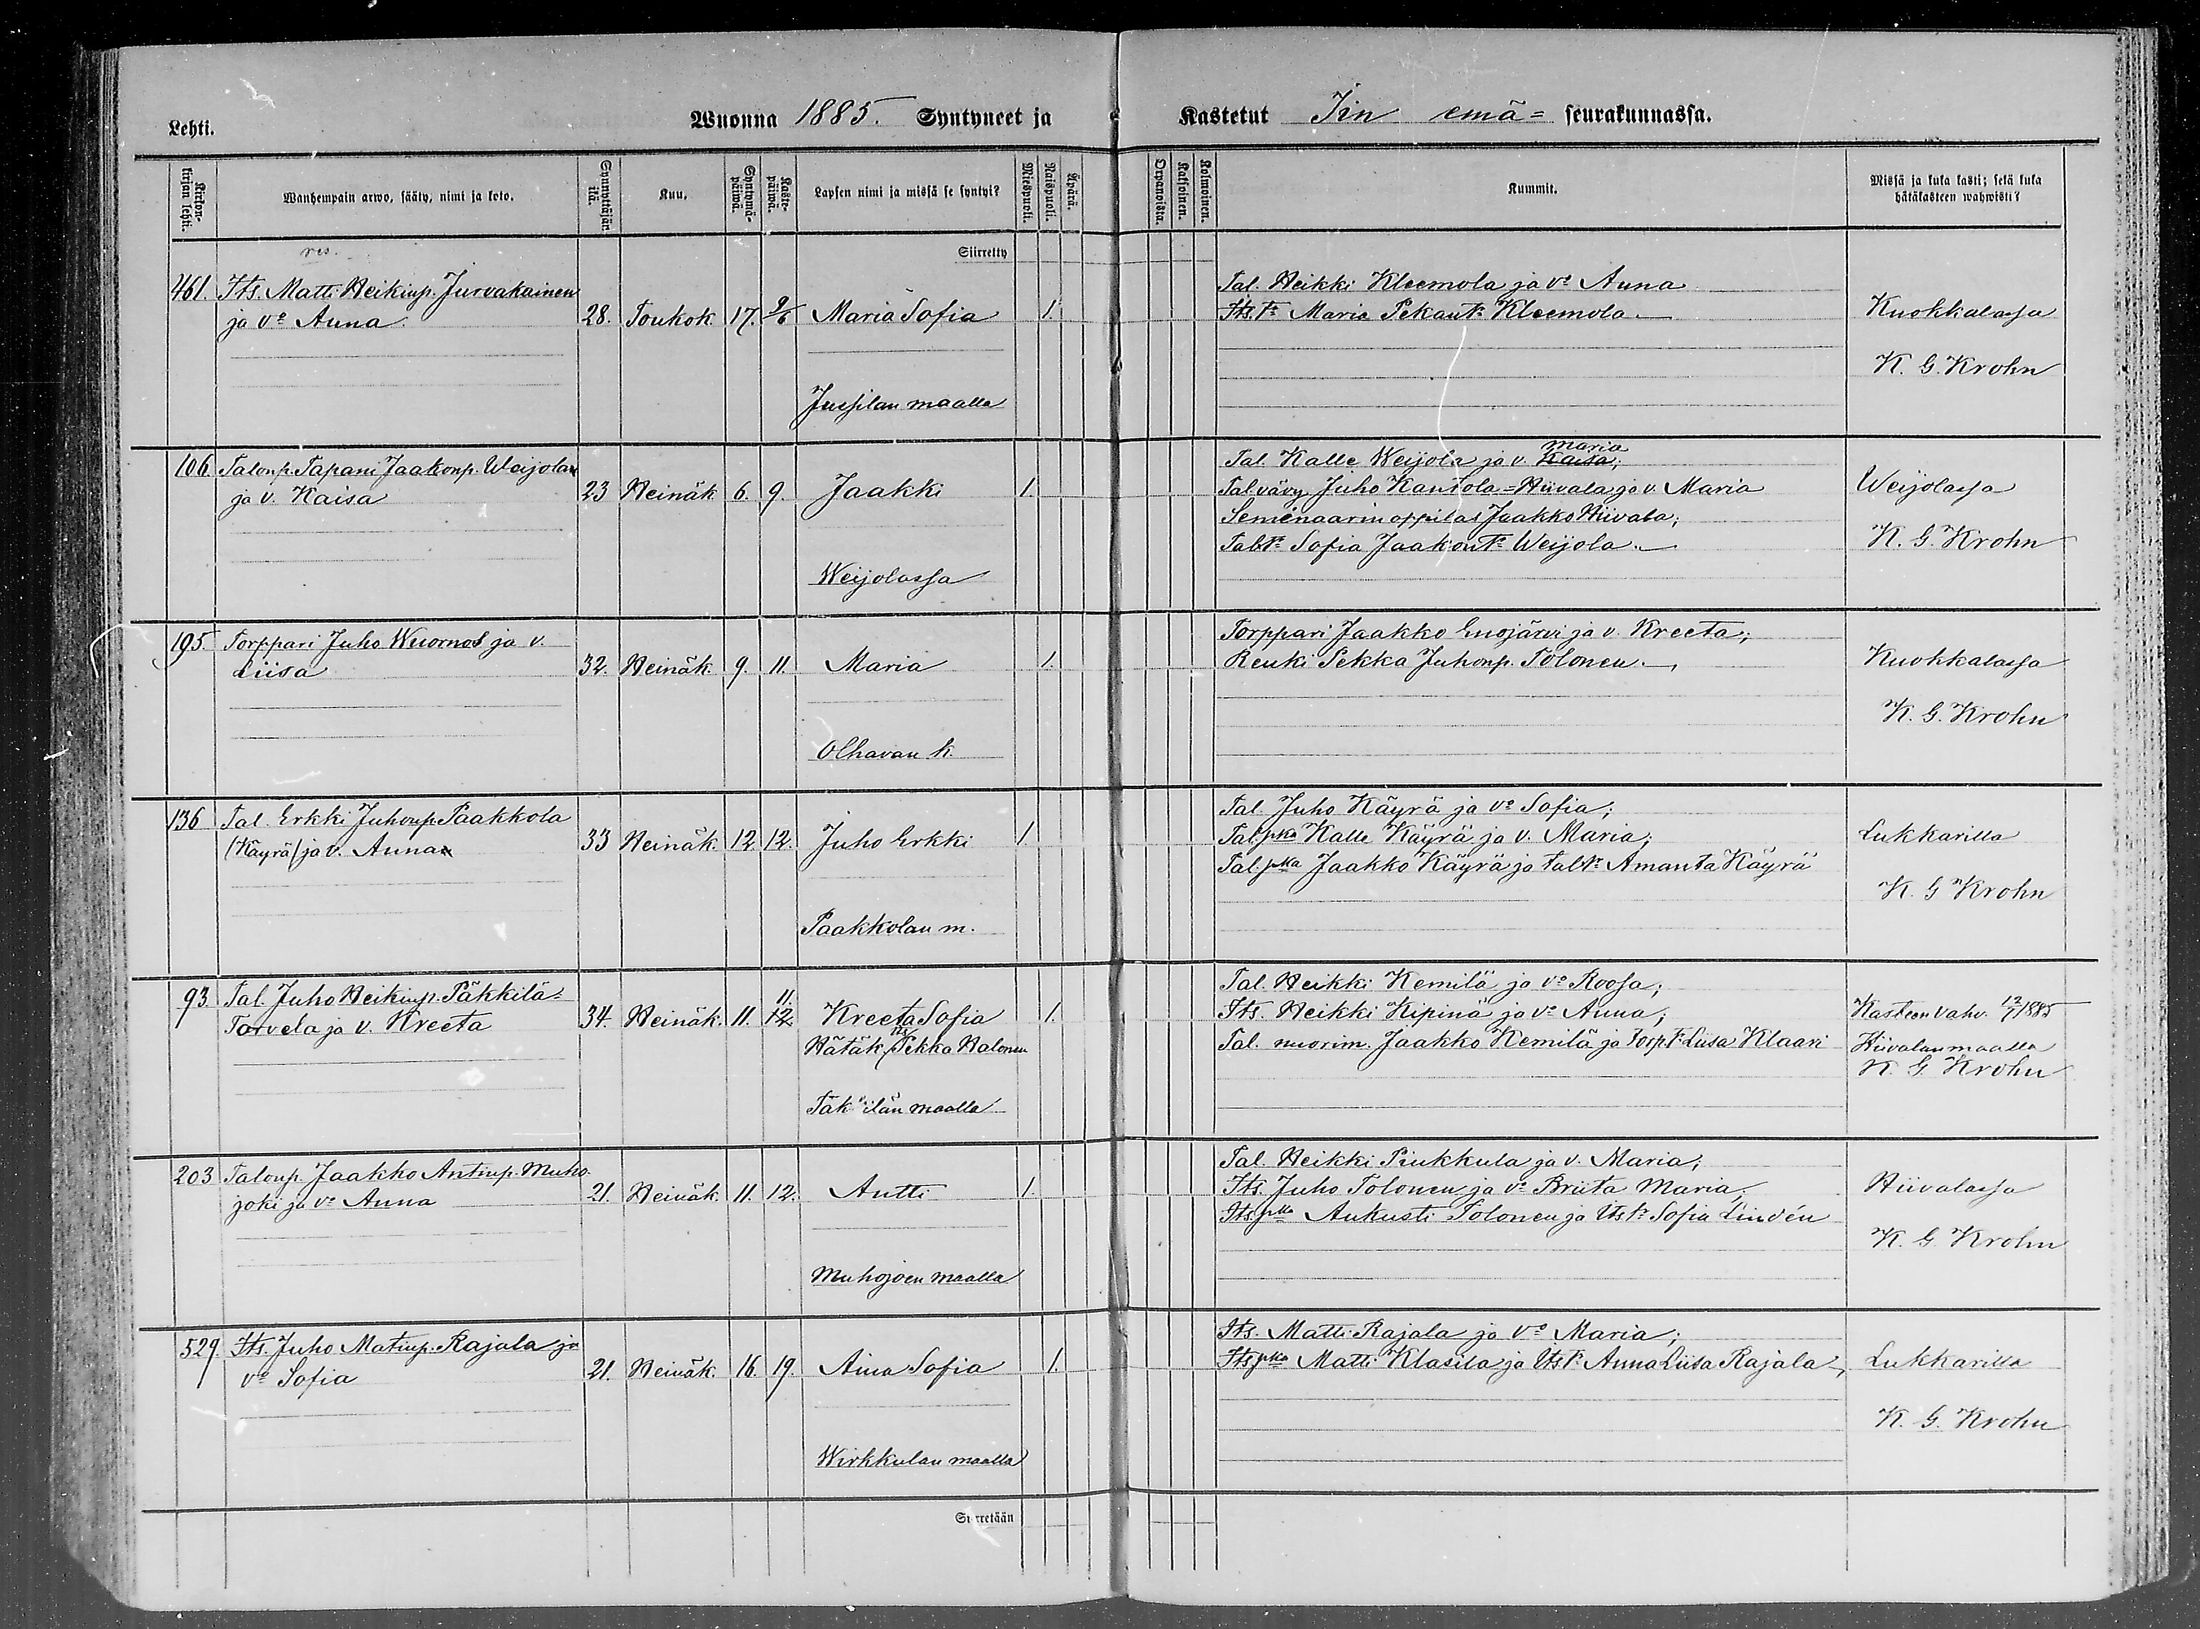 Lehti.
Wuonna 1885. Syntyneet ja Kastetut Iin emä= seurakunnassa.
Kirkonkirjan lehti.
Wanhempain arwo, sääty, nimi ja koto.
Synnyttäjän ikä.
Kuu.
Syntymäpäiwä.
Kastepäiwä.
Lapsen nimi ja missä se syntyi?
Miespuoli.
Naispuoli.
Äpärä.
Orpanoista.
Kaksoinen.
Kolmoinen.
Kummit.
Missä ja kuka kasti; sekä kuka hätäkasteen wahwisti?
Siirretty
res.
461. Its. Matti Heikinp. Jurvakainen
ja vo Anna. 28. Toukok 17. 9/6 Maria Sofia 1.
Jussilan maalla
Tal. Heikki Kleemola ja vo Anna
Its tr Maria Pekantr Kleemola.
Kuokkalassa
K. G. Krohn
106. Talonp. Tapani Jaakonp. Weijolan
ja v. Kaisa 23 Heinäk 6. 9. Jaakki 1.
Weijolassa
Maria
Tal. Kalle Weijola ja v. Kaisa;
Tal. vävy Juho Kantola=Hiivala ja v. Maria
Seminaarin oppilas Jaakko Hiivala;
Tal tr Sofia Jaakontr Weijola.
Weijolassa
K. G. Krohn
195 Torppari Juho Wuornos ja v.
Liisa 32. Heinäk. 9. 11. Maria 1.
Olhavan k.
Torppari Jaakko Enojärvi ja v. Kreeta;
Renki Pekka Juhonp. Tolonen.
Kuokkalassa
K. G. Krohn
136 Tal. Erkki Juhonp. Paakkola
(Käyrä) ja v. Anna 33 Heinäk. 12 12. Juho Erkki 1.
Paakkolan m.
Tal. Juho Käyrä ja vo Sofia;
Tal. pka Kalle Käyrä ja v. Maria;
Tal. pka Jaakko Käyrä ja tal tr Amanta Käyrä
Lukkarilla
K. G Krohn
93. Tal. Juho Heikinp. Päkkilä=
Tarvela ja v. Kreeta 34. Heinäk. 11. 11. 12. Kreeta Sofia 1.
Hätäk. Its Pekka Halonen
Päkkilän maalla
Tal. Heikki Kemilä ja vo Roosa;
Its. Heikki Kipinä ja vo Anna;
Tal. nuorim. Jaakko Kemilä ja torp tr Liisa Klaari
Kasteen vahv. 12/7 1885
Hiivalan maalla
K. G. Krohn
203 Talonp. Jaakko Antinp. Muho-
joki ja vo Anna 21. Heinäk. 11. 12. Antti 1.
Muhojoen maalla
Tal. Heikki Pinkkula ja v. Maria;
Its. Juho Tolonen ja vo Briita Maria;
Its pka Aukusti Tolonen ja Its tr Sofia Lindén
Hiivalassa
K. G. Krohn
529. Its. Juho Matinp. Rajala ja
vo Sofia 21. Heinäk. 16. 19. Aina Sofia 1.
Wirkkulan maalla
Its. Matti Rajala ja vo Maria;
Its pka Matti Klasila ja Its tr Anna Liisa Rajala,
Lukkarilla
K. G. Krohn
Siirretään